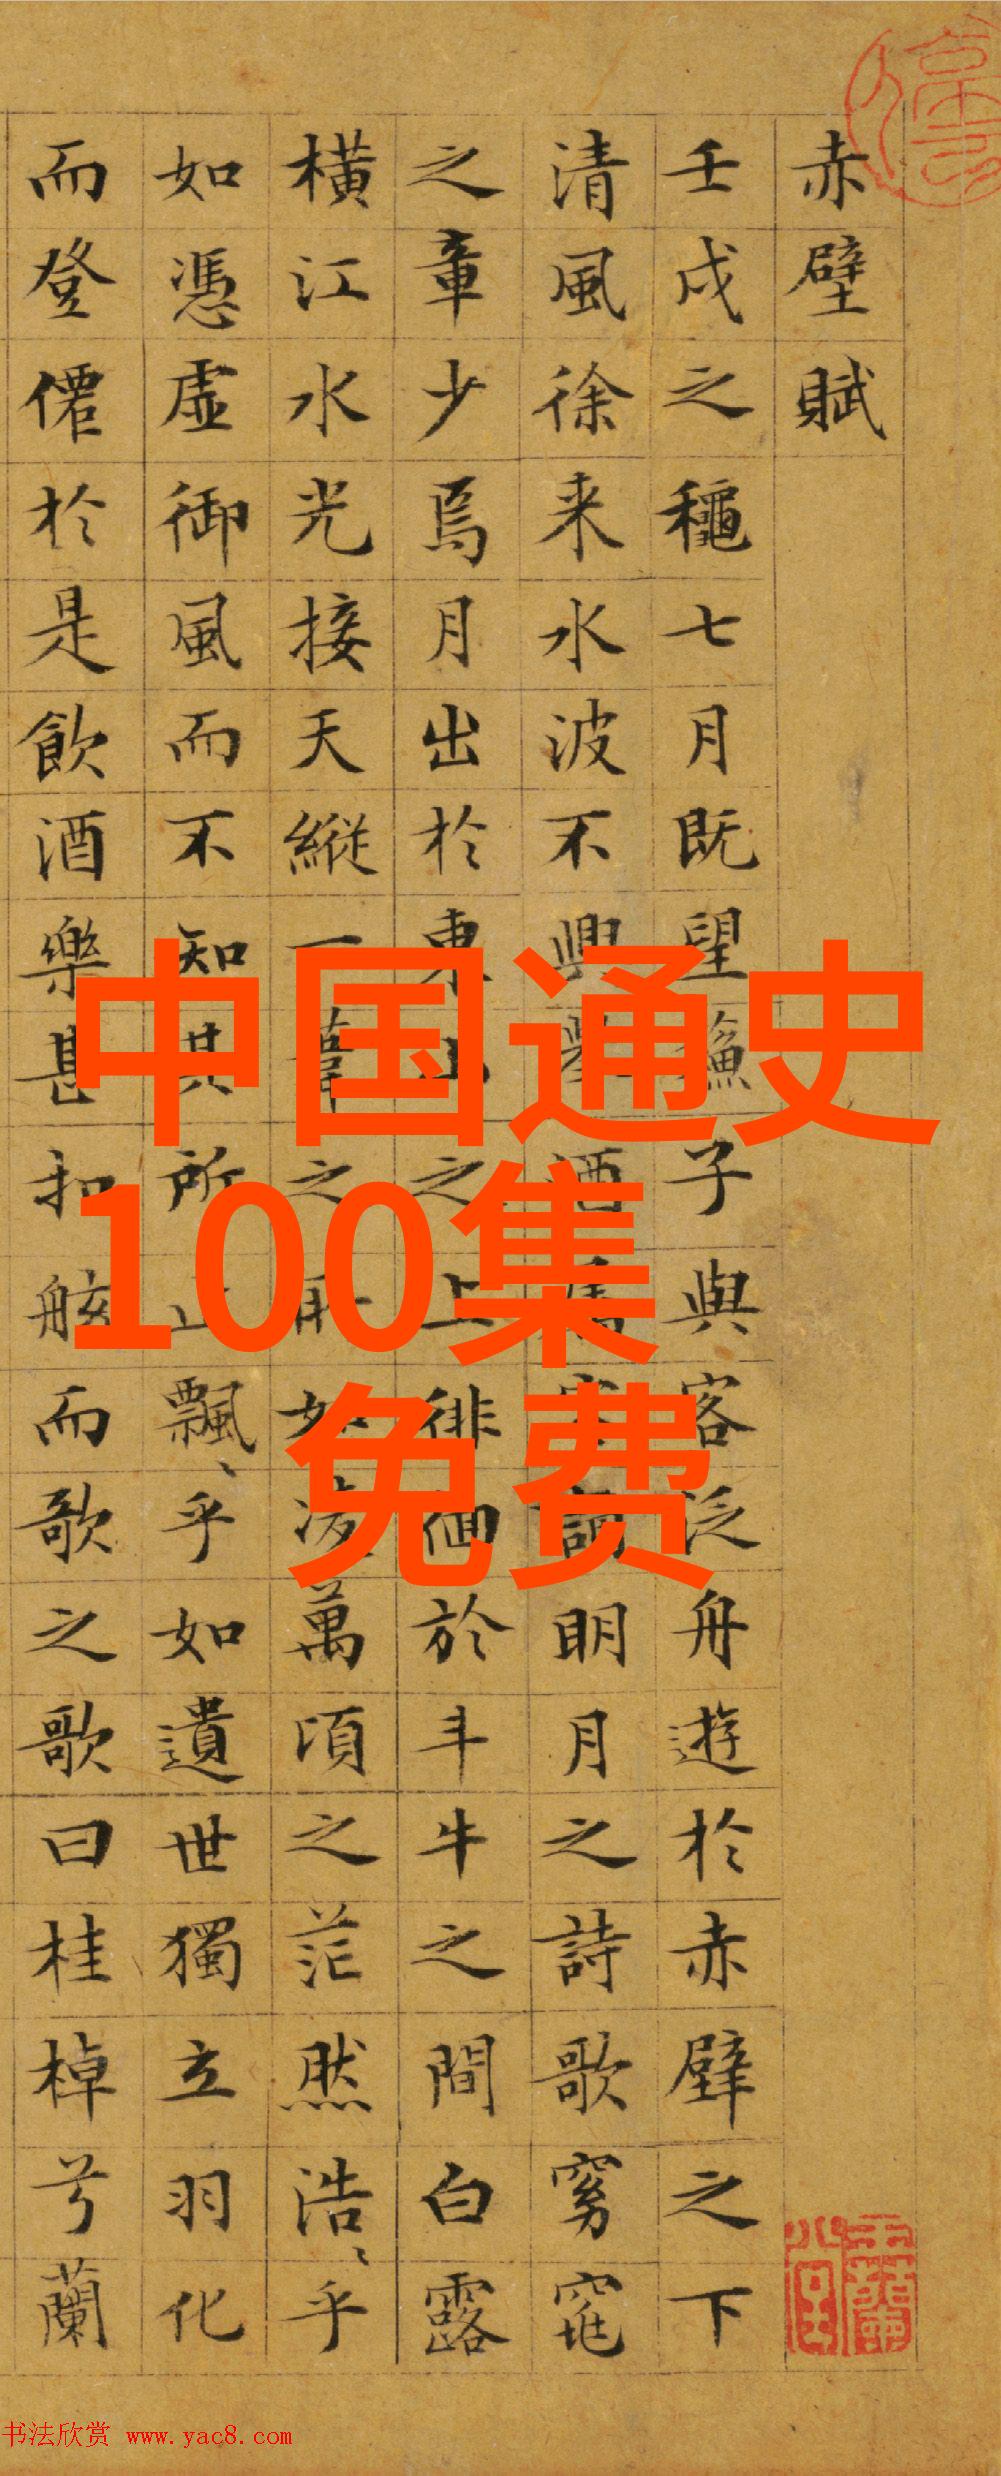 赤壁賦
壬戌之穐七月既望蘓子與客泛舟遊於赤壁之下
清風徐来水波不興舉酒属客誦明月之詩歌窈窕
之章少焉月出於東山之上徘徊於斗牛之間白露
橫江水光接天縱一葦之所如凌萬頃之茫然浩、乎
如憑虛御風而不知其所止飄、乎如遺世獨立羽化
而登僊於是飲酒樂甚扣舷而歌之歌曰桂棹兮蘭
中国通史
100集
免费
书法欣赏 www.yac8.com